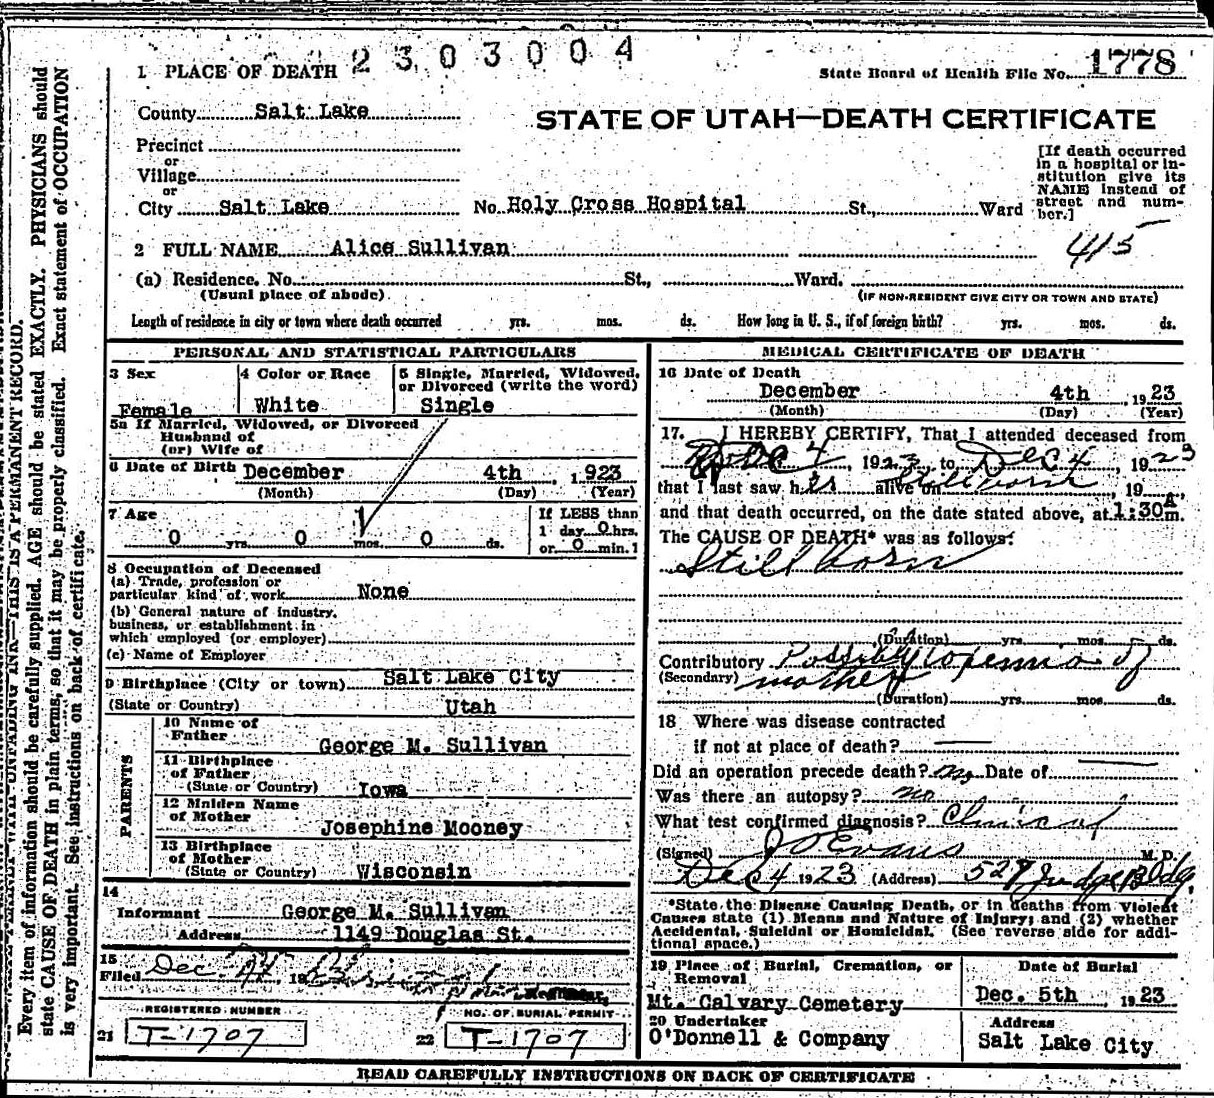 2303004
1 PLACE OF DEATH
State Board of Health File No. 1778
County Salt Lake
STATE OF UTAH—DEATH CERTIFICATE
Precinct
or
Village
or
City Salt Lake No. Holy Cross Hospital St., Ward
[If death occurred
in a hospital or in-
stitution give its
NAME instead of
street and num-
ber.]
2 FULL NAME Alice Sullivan
415
(a) Residence. No. St., Ward.
(Usual place of abode) (IF NON-RESIDENT GIVE CITY OR TOWN AND STATE)
Length of residence in city or town where death occurred yrs. mos. ds. How long in U. S., if of foreign birth? yrs. mos. ds.
PERSONAL AND STATISTICAL PARTICULARS
3 Sex
Female
4 Color or Race
White
5 Single, Married, Widowed,
or Divorced (write the word)
Single
5a If Married, Widowed, or Divorced
Husband of
(or) Wife of
6 Date of Birth December 4th, 1923
(Month) (Day) (Year)
7 Age
0 yrs. 0 mos. 0 ds.
If LESS than
1 day 0 hrs.
or 0 min.?
8 Occupation of Deceased
(a) Trade, profession or
particular kind of work None
(b) General nature of industry,
business, or establishment in
which employed (or employer)
(c) Name of Employer
9 Birthplace (City or town) Salt Lake City
(State or Country) Utah
PARENTS
10 Name of
Father George M. Sullivan
11 Birthplace
of Father
(State or Country) Iowa
12 Maiden Name
of Mother Josephine Mooney
13 Birthplace
of Mother
(State or Country) Wisconsin
14
Informant George M. Sullivan
Address 1149 Douglas St.
15
Filed Dec.
REGISTERED NUMBER
21 T-1707
NO. OF BURIAL PERMIT
22 T-1707
MEDICAL CERTIFICATE OF DEATH
16 Date of Death
December 4th, 1923
(Month) (Day) (Year)
17. I HEREBY CERTIFY, That I attended deceased from
Dec 4, 1923, to Dec 4, 1923
that I last saw her alive on Stillborn, 19
and that death occurred, on the date stated above, at 1:30 A m.
The CAUSE OF DEATH* was as follows:
Stillborn
(Duration) yrs. mos. ds.
Contributory Possibly toxemia of
(Secondary) mother
(Duration) yrs. mos. ds.
18 Where was disease contracted
if not at place of death?
Did an operation precede death? no Date of
Was there an autopsy? no
What test confirmed diagnosis? Clinical
(Signed) J O Evans M. D.
Dec 4 1923 (Address) 527 Judge Bldg.
*State the Disease Causing Death, or in deaths from Violent
Causes state (1) Means and Nature of Injury; and (2) whether
Accidental, Suicidal or Homicidal. (See reverse side for addi-
tional space.)
19 Place of Burial, Cremation, or
Removal
Mt. Calvary Cemetery
Date of Burial
Dec. 5th, 1923
20 Undertaker
O'Donnell & Company
Address
Salt Lake City
READ CAREFULLY INSTRUCTIONS ON BACK OF CERTIFICATE
Every item of information should be carefully supplied. AGE should be stated EXACTLY. PHYSICIANS should
state CAUSE OF DEATH in plain terms, so that it may be properly classified. Exact statement of OCCUPATION
is very important. See instructions on back of certificate.
THIS IS A PERMANENT RECORD.